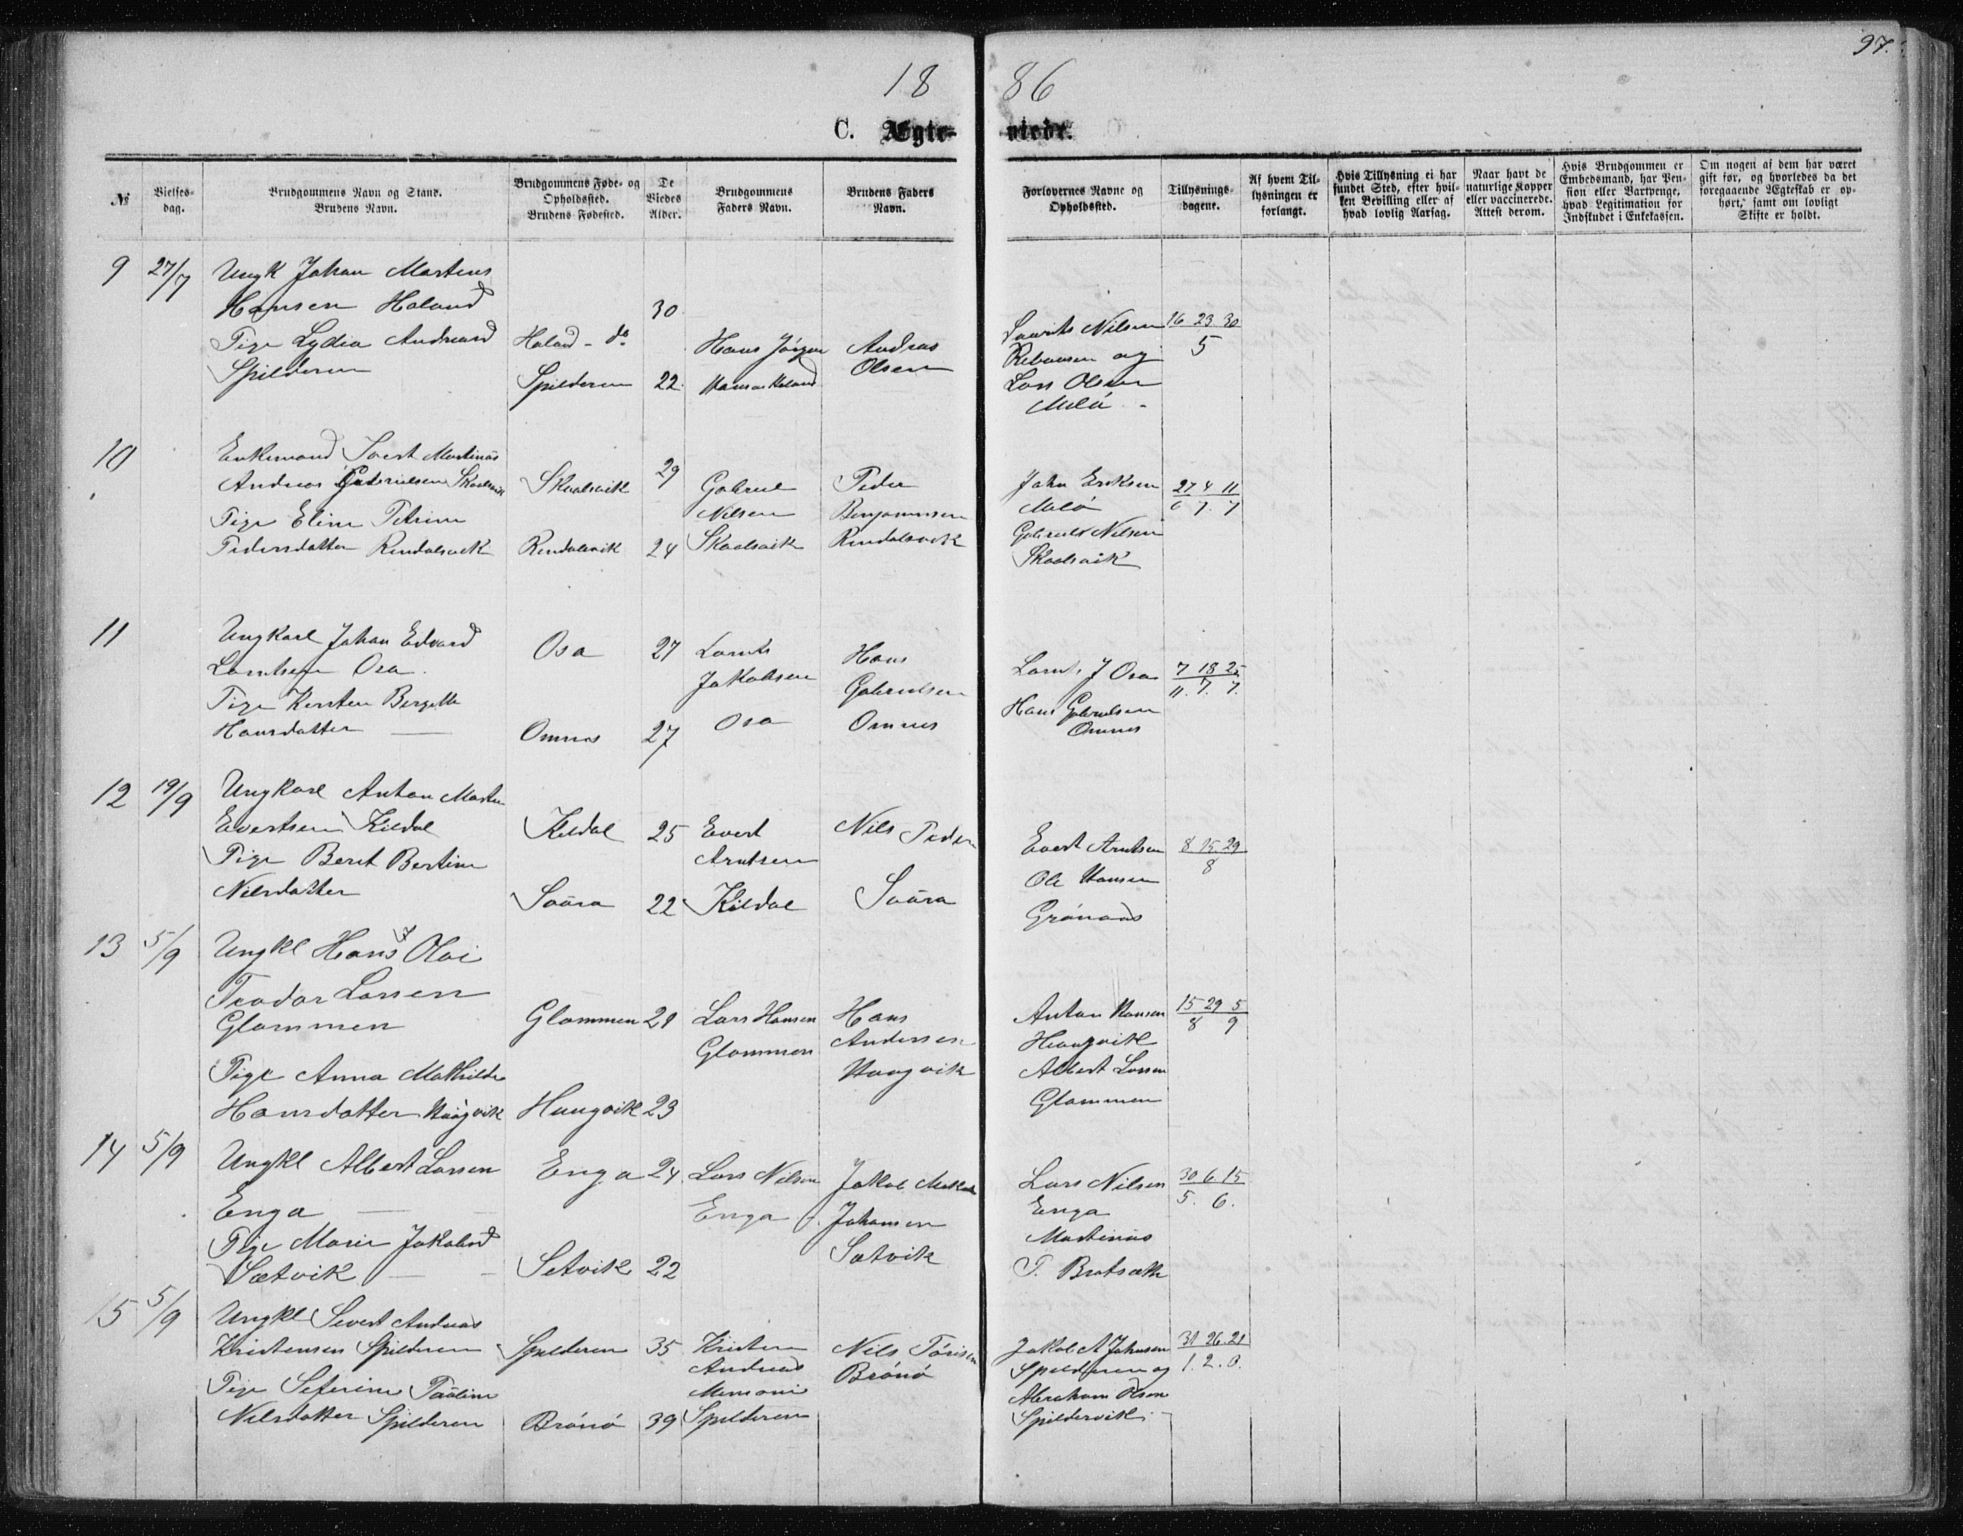 97.
18 86
C. Ægte- viede.
№
Vielses-
dag.
Brudgommens Navn og Stand.
Brudens Navn.
Brudgommens Føde- og
Opholdssted.
Brudens Fødested.
De
Viedes
Alder.
Brudgommens
Faders Navn.
Brudens Faders
Navn.
Forlovernes Navne og
Opholdssted.
Tillysnings-
dagene.
Af hvem Til-
lysningen er
forlangt.
Hvis Tillysning ei har
fundet Sted, efter hvil-
ken Bevilling eller af
hvad lovlig Aarsag.
Naar havt de
naturlige Kopper
eller vaccinerede.
Attest derom.
Hvis Brudgommen er
Embedsmand, har Pen-
sion eller Vartpenge,
hvad Legitimation for
Indskudet i Enkekassen.
Om nogen af dem har været
gift før, og hvorledes da det
foregaaende Ægteskab er op-
hørt, samt om lovligt
Skifte er holdt.
9 27/7
Ungk Johan Martens
Hansen Haland
Pige Lydia Andreasd
Spilderen
Haland - do
Spilderen
30
22
Hans Jörgen
Hansen Haland
Andreas
Olsen
Laurits Nilsen
og
Lars Olsen
Melö
16 23 30
5
10
Enkemand Sivert Martinus
Andreas Gabrielsen Skaelsvik
Pige Eline Petrine
Pedersdatter Rendalsvik
Skaelsvik
Rendalsvik
29
24
Gabriel
Nilsen
Skaelsvik
Peder
Benjaminsen
Rendalsvik
John Eriksen
Melö
Gabriel Nilsen
Skaelsvik
27 4 11
6 7. 7
11
Ungkarl Johan Edvard
Lorntsen Osa.
Pige Kirsten Bergitte
Hansdatter
Osa
Omnes
27
27
Lornts
Jakobsen
Osa
Hans
Gabrielsen
Omnes
Lornts J Osa
Hans Gabrielsen
Omnes
7 18 25
11. 7. 7.
12 19/9
Ungkarl Anton Martin
Evertsen Kildal
Pige Berit Bertine
Nilsdatter
Kildal
Saura
25
22
Evert
Arntsen
Kildal
Nils Peder
Saura
Evert Arntsen
Ole Hansen
Grönaas
8 15 29
8
13 5/9
Ungkl Hans Olai
Teodor Larsen
Glommen
Pige Anna Mathilde
Hansdatter Haugvik
Glommen
Haugvik
21
23
Lars Hansen
Glommen
Hans
Andersen
Haugvik
Anton Hansen
Haugvik
Albert Larsen
Glommen
15 29 5
8 9
14 5/9
Ungkl Albert Larsen
Enga
Pige Marie Jakobsd
Sætvik
Enga
Setvik
24
22
Lars Nilsen
Enga
Jakob
Johansen
Sætvik
Lars Nilsen
Enga
Martinus
P. Bratsæth
30 6 15
5. 6.
15 5/9
Ungkl Sivert Andreas
Kristensen Spilderen
Pige Seferine Pauline
Nilsdatter Spilderen
Spilderen
Brönö
35
39
Kristen
Andreas
Spilderen
Nils
Brönö
Jakob A Johnsen
Spilderen og
Abraham Olsen
Spildervik
31 26. 21
1. 2. 0.